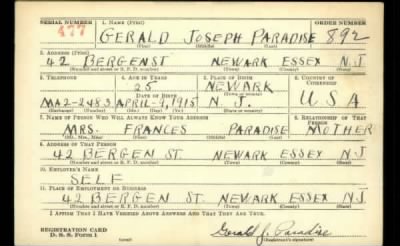 SERIAL NUMBER 1. NAME (Print) ORDER NUMBER
477 GERALD JOSEPH PARADISE 892
(First) (Middle) (Last)
2. ADDRESS (Print)
42 BERGEN ST NEWARK ESSEX N.J
(Number and street or R. F. D. number) (Town) (County) (State)
3. TELEPHONE 4. AGE IN YEARS 5. PLACE OF BIRTH 6. COUNTRY OF CITIZENSHIP
25 NEWARK
DATE OF BIRTH
MA2-2483 APRIL-9,1915 N.J. U S A
(Exchange) (Number) (Mo.) (Day) (Yr.) (State or country)
7. NAME OF PERSON WHO WILL ALWAYS KNOW YOUR ADDRESS 8. RELATIONSHIP OF THAT PERSON
MRS. FRANCES PARADISE MOTHER
(Mr., Mrs., Miss) (First) (Middle) (Last)
9. ADDRESS OF THAT PERSON
42 BERGEN ST. NEWARK ESSEX N.J
(Number and street or R. F. D. number) (Town) (County) (State)
10. EMPLOYER'S NAME
SELF
11. PLACE OF EMPLOYMENT OR BUSINESS
42 BERGEN ST. NEWARK ESSEX N.J
(Number and street or R. F. D. number) (Town) (County) (State)
I AFFIRM THAT I HAVE VERIFIED ABOVE ANSWERS AND THAT THEY ARE TRUE.
REGISTRATION CARD
D. S. S. Form 1 Gerald J. Paradise
(over) (Registrant's signature)